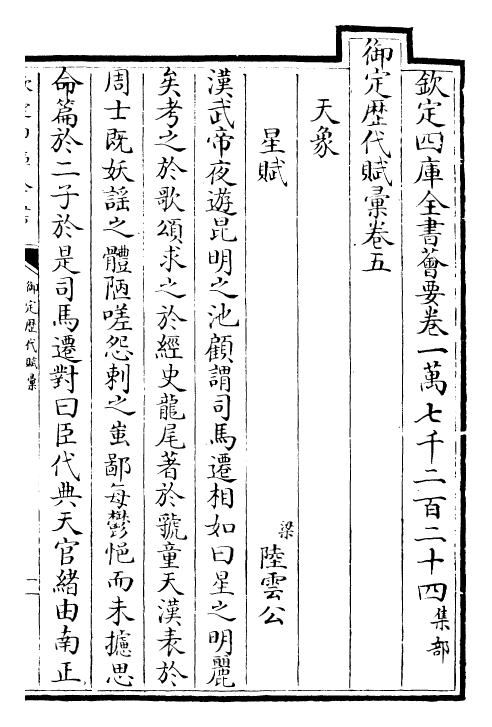 欽定四庫全書薈要卷一萬七千二百二十四集部
御定歴代賦彙卷五
天象
星賦
梁陸雲公
漢武帝夜遊昆明之池顧謂司馬遷相如曰星之明麗
矣考之於歌頌求之於經史龍尾著於虢童天漢表於
周士既妖謡之體陋嗟怨刺之蚩鄙每鬱悒而未攄思
命篇於二子於是司馬遷對曰臣代典天官緒由南正
御定歴代賦彙
一